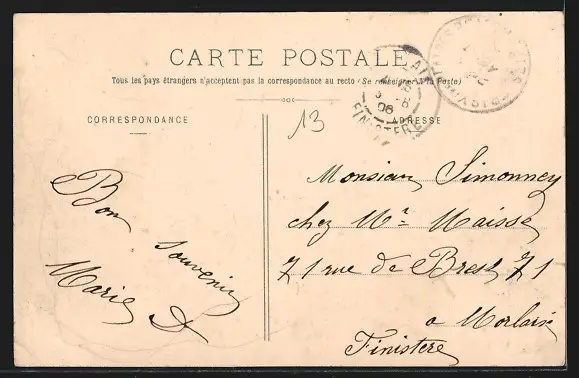 CARTE POSTALE
Tous les pays étrangers n'acceptent pas la correspondance au recto (Se renseigner à la Poste)
CORRESPONDANCE
ADRESSE
13
FINISTERE
06
Bon
souvenir
Marie D
Monsieur Simonney
chez Mr Maissé
71 rue de Brest 71
a Morlaix
Finistere